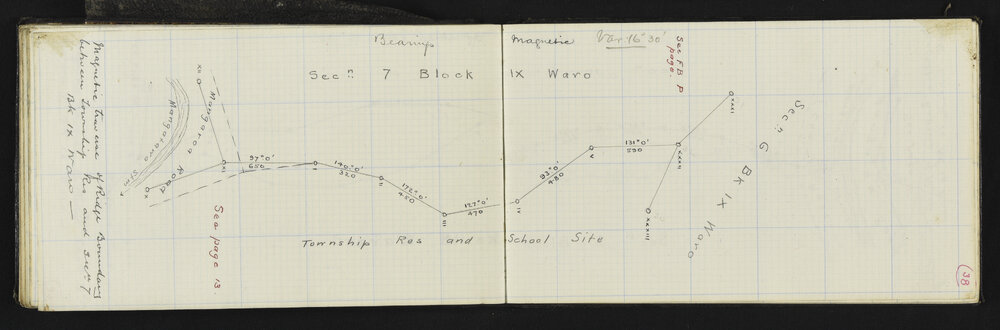 Bearings Magnetic Var 16°30'
Secⁿ 7 Block IX Waro
See F B P
page
Magnetic traverse of Ridge Boundary
between Township Res and Secⁿ 7
Bk IX Waro —
XII
Mangaroa
Road
Stm
X
XI
97°0'
650
I
140°0'
320
II
172°0'
450
III
127°0'
470
IV
93°0'
480
V
131°0'
290
XXXI
XXXII
XXXIII
Secⁿ 6 Bk IX Waro
See page 13.
Township Res and School Site
38